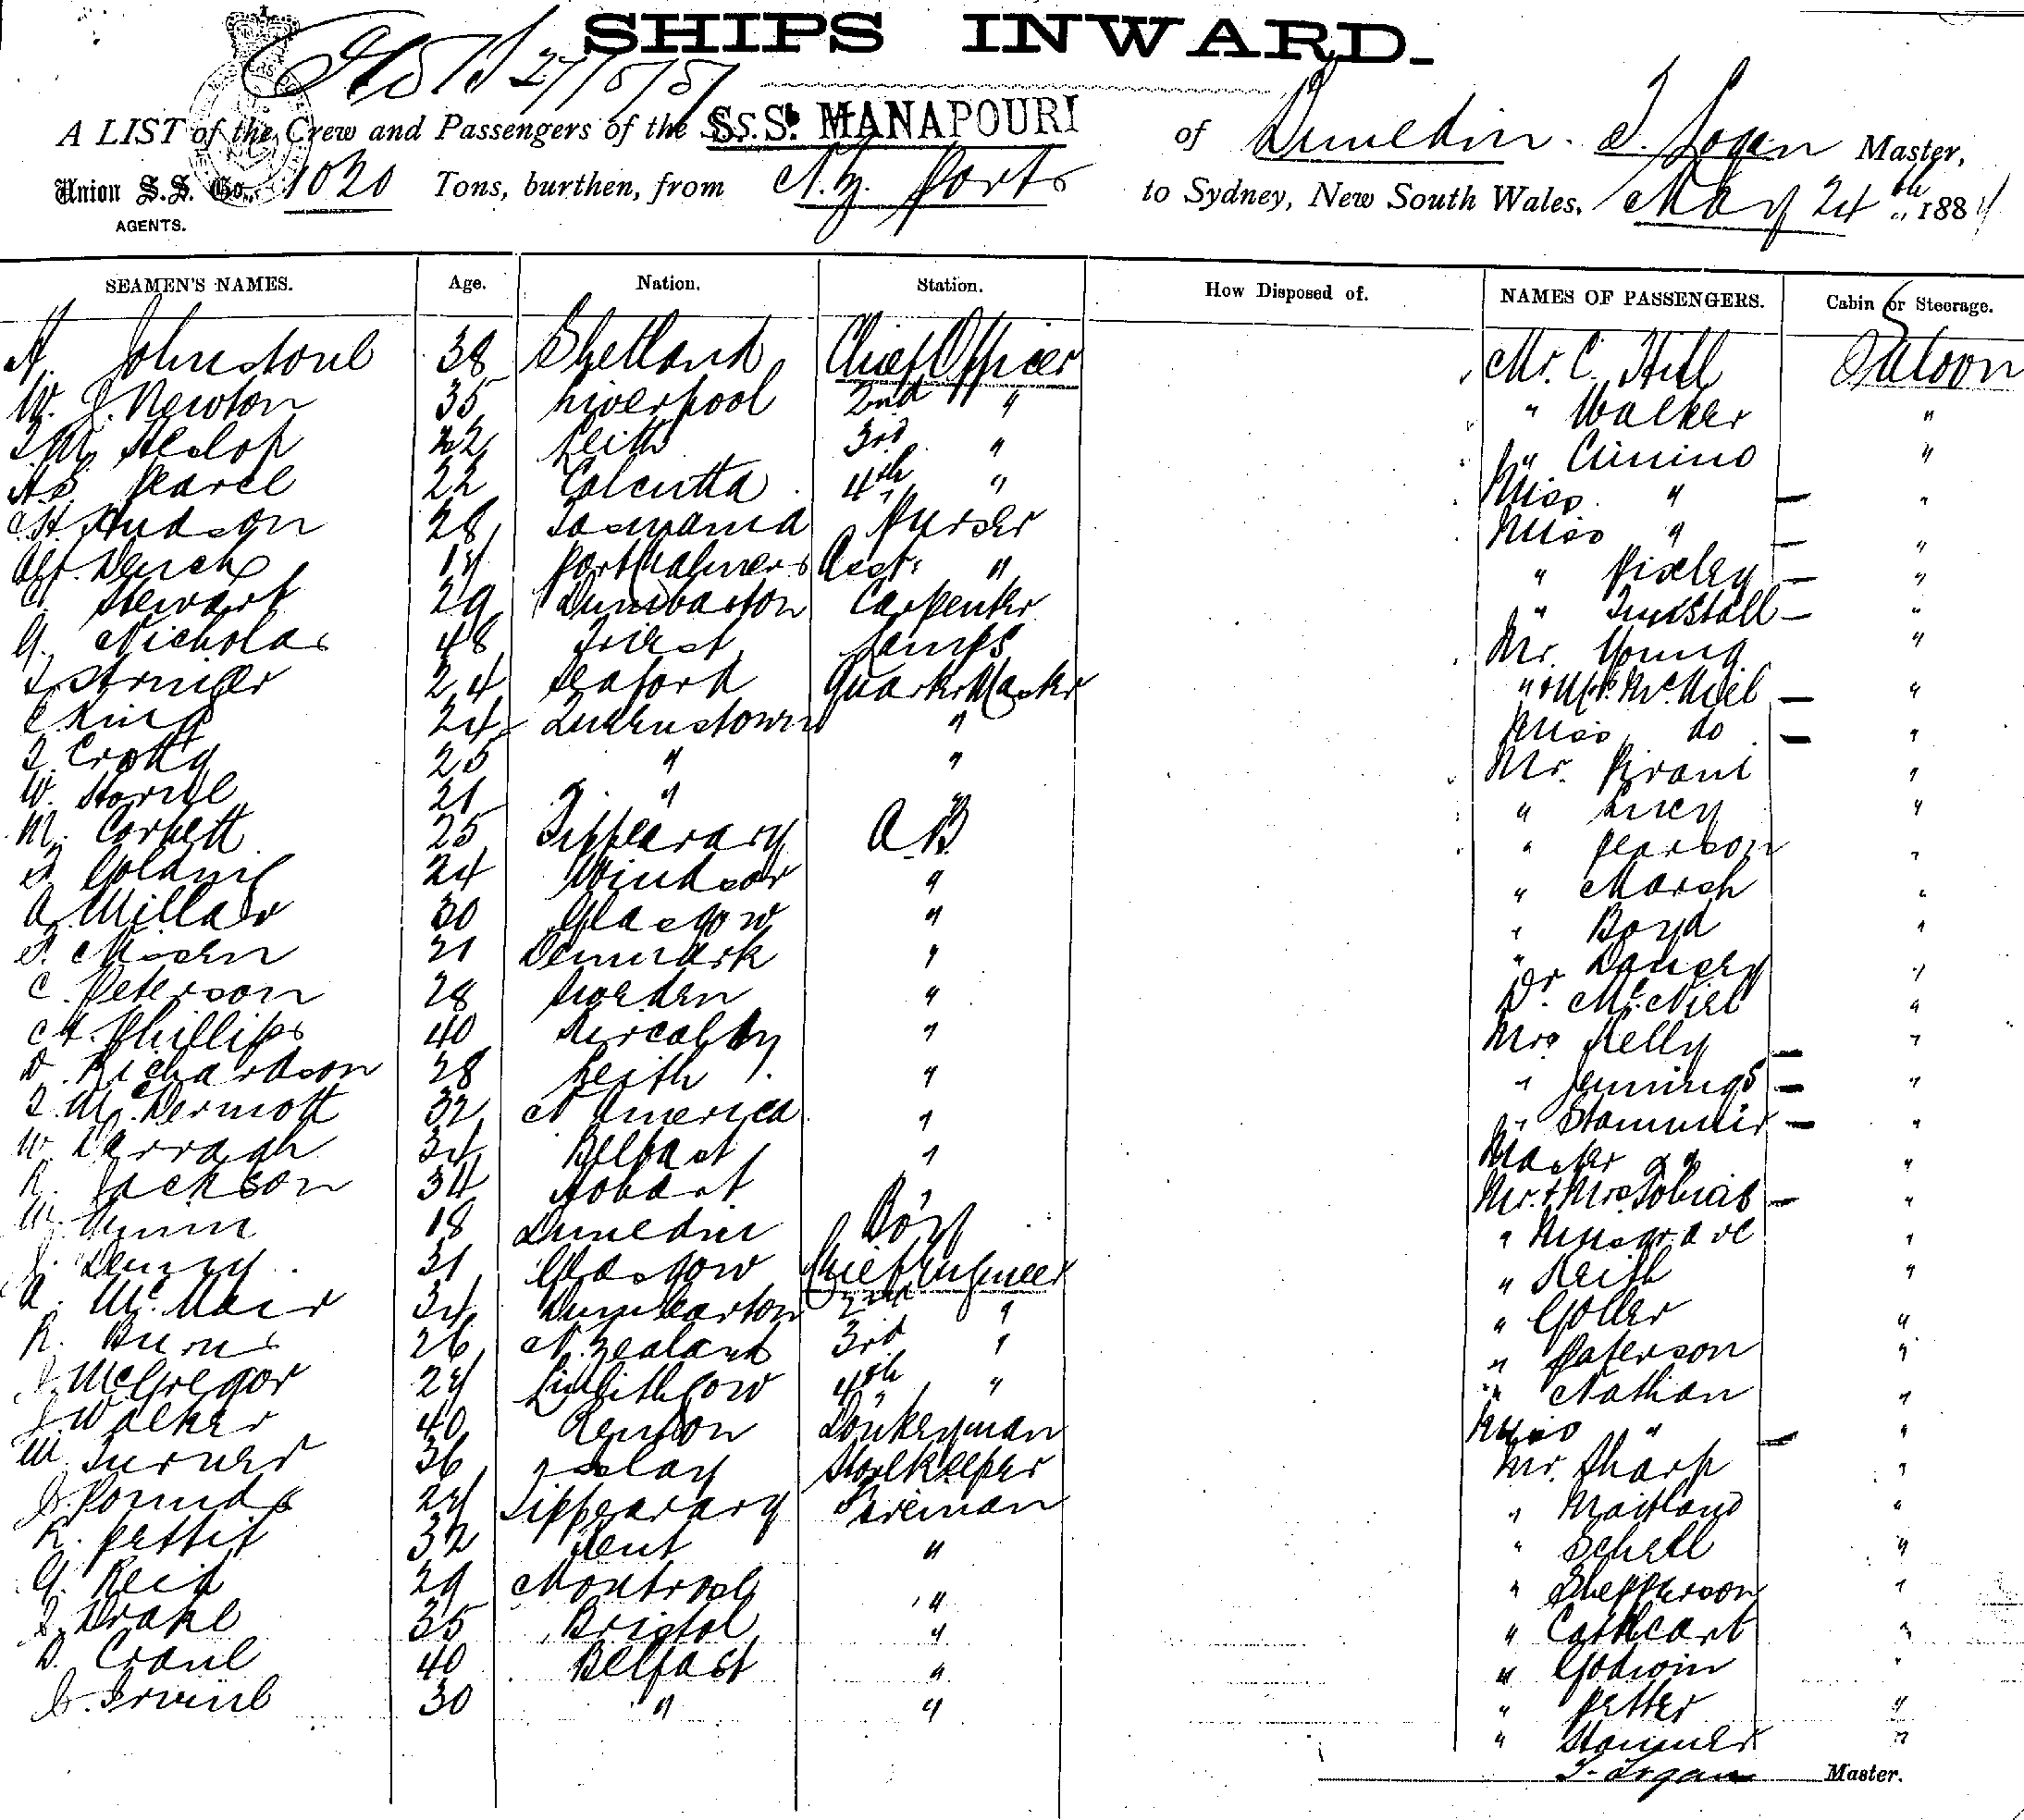 SHIPS INWARD.
A LIST of the Crew and Passengers of the S.S. MANAPOURI of Dunedin. T. Logan Master,
Union S.S. Co., 1020 Tons, burthen, from N.Z. Ports to Sydney, New South Wales, May 24th 188
AGENTS.
SEAMEN'S NAMES. Age. Nation. Station. How Disposed of. NAMES OF PASSENGERS. Cabin or Steerage.
A. Johnstone 38 Shetland Chief Officer Mr. C. Hill Saloon
W. J. Newton 35 Liverpool 2nd " " Walker "
Heslop 22 Leith 3rd " " Cimino "
Pearce 22 Calcutta 4th " Miss " — "
Hudson 28 Tasmania Purser Miss " — "
Port Chalmers Asst. " " Pixley — "
Stewart 29 Dumbarton Carpenter " Tunstall — "
G. Nicholas 48 Triest Lamps Mr. Young "
24 Seaford Quarter Master " & Mrs. McNiel — "
King 24 Queenstown " Miss do — "
T. Crotty 25 " " Mr. "
W. 21 " " " "
M. Corbett 25 Tipperary A.B. " Pearson "
24 Windsor " " Marsh "
A. Millar 30 Glasgow " " Boyd "
21 Denmark " " "
C. Peterson 28 Sweden " Dr. McNiel "
Phillips 40 Kircaldy " Mrs Kelly — "
D. Richardson 28 Leith " " Jennings — "
McDermott 32 N America " " — "
W. Darragh 34 Belfast " Master " "
R. Jackson 34 Hobart Mr. & Mrs. Tobias — "
18 Dunedin Boy " Musgrave "
J. Denny 31 Glasgow Chief Engineer " Keith "
A. McNair 34 Dumbarton 2nd " " "
R. Burns 26 N. Zealand 3rd " " Paterson "
McGregor Linlithgow 4th " " Nathan "
J. Walker 40 Renton Donkeyman Miss " — "
W. Turner 36 Islay Storekeeper Mr. Sharp "
Pounds Tipperary Fireman " Maitland "
R. Pettit 32 Kent " " Schell "
G. Reid 29 Montrose " " Shepperson "
Drake 35 Bristol " " Cathcart "
D. Crane 40 Belfast " " Godwin "
Irvine 30 " " " Petter "
" "
T. Logan Master.